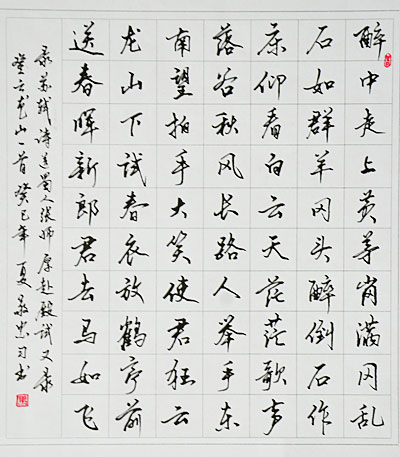 醉中走上黄茅冈满冈乱
石如群羊冈头醉倒石作
床仰看白云天茫茫歌声
落谷秋风长路人举手东
南望拍手大笑使君狂云
龙山下试春衣放鹤亭前
送春晖新郎君去马如飞
录苏轼诗送蜀人张师厚赴殿试又录
登云龙山一首癸巳年夏忠习书